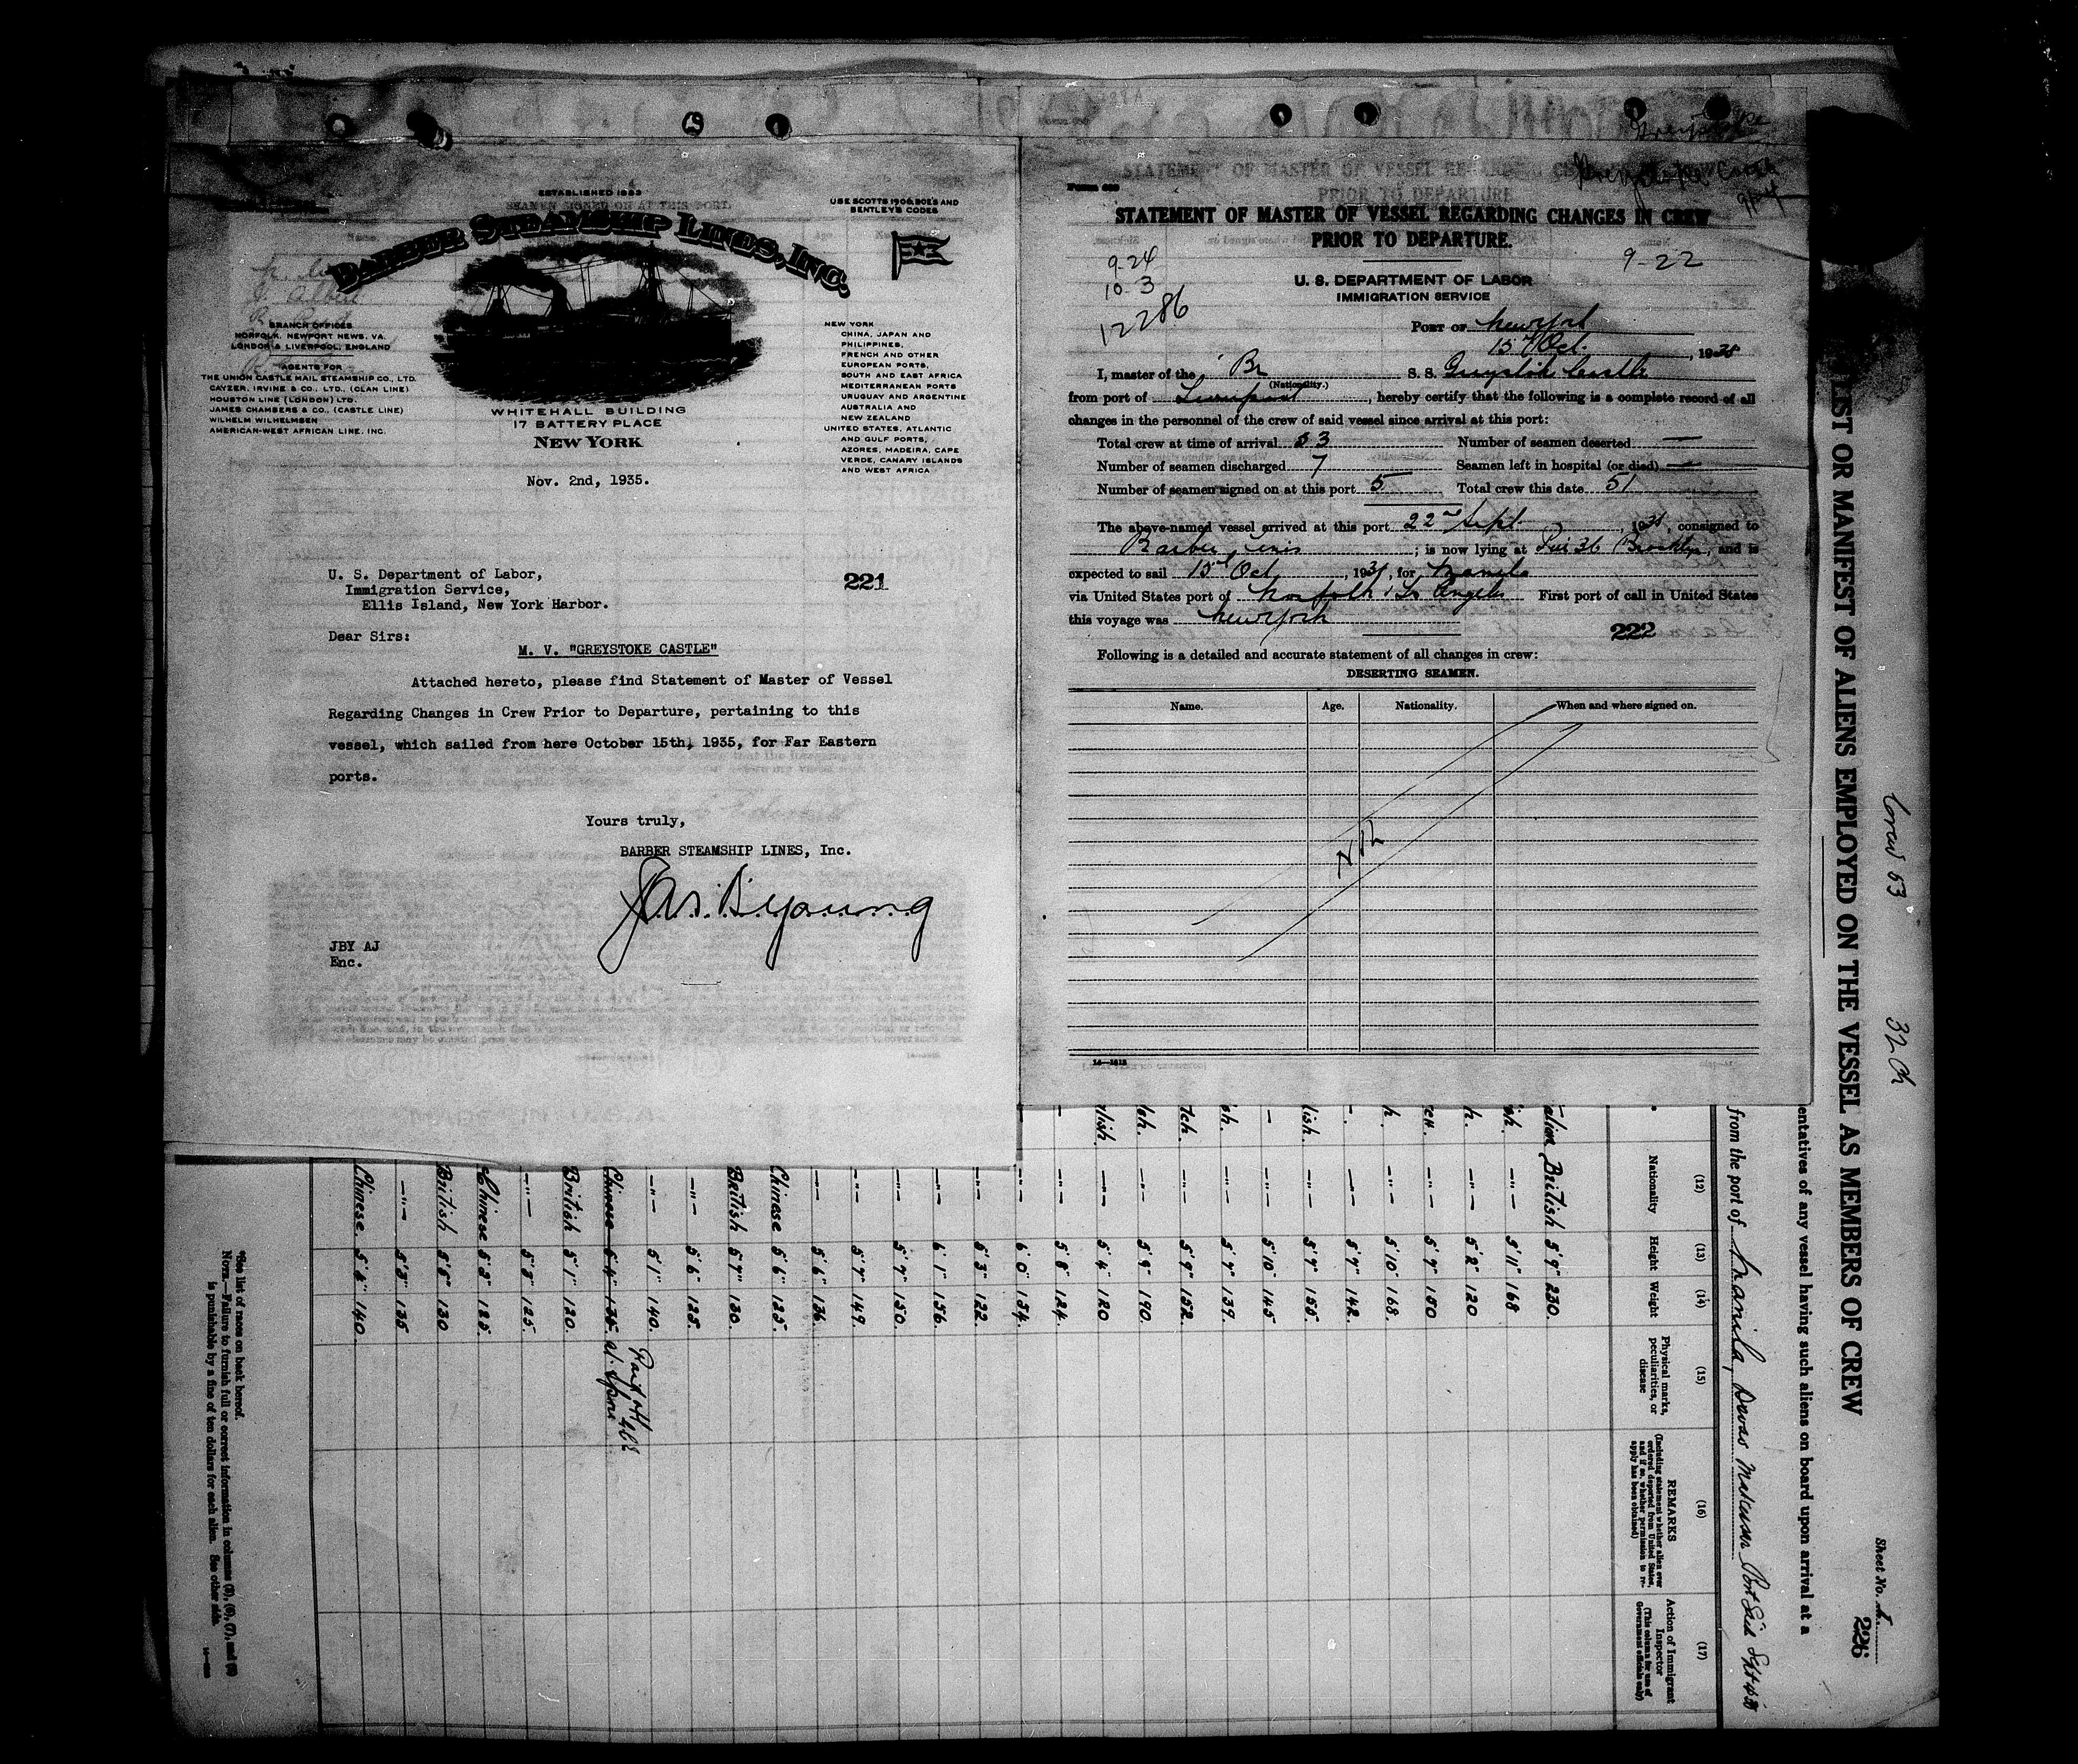 ESTABLISHED 1883
USE SCOTTS 1906, BOE'S AND
BENTLEY'S CODES
BARBER STEAMSHIP LINES, INC.
BRANCH OFFICES
NORFOLK, NEWPORT NEWS, VA.
LONDON & LIVERPOOL, ENGLAND
AGENTS FOR
THE UNION CASTLE MAIL STEAMSHIP CO., LTD.
CAYZER, IRVINE & CO., LTD., (CLAN LINE)
HOUSTON LINE (LONDON) LTD.
JAMES CHAMBERS & CO., (CASTLE LINE)
WILHELM WILHELMSEN
AMERICAN-WEST AFRICAN LINE, INC.
WHITEHALL BUILDING
17 BATTERY PLACE
NEW YORK
NEW YORK
CHINA, JAPAN AND
PHILIPPINES,
FRENCH AND OTHER
EUROPEAN PORTS,
SOUTH AND EAST AFRICA
MEDITERRANEAN PORTS
URUGUAY AND ARGENTINE
AUSTRALIA AND
NEW ZEALAND
UNITED STATES, ATLANTIC
AND GULF PORTS,
AZORES, MADEIRA, CAPE
VERDE, CANARY ISLANDS
AND WEST AFRICA
Nov. 2nd, 1935.
U. S. Department of Labor,
Immigration Service,
Ellis Island, New York Harbor.
221
Dear Sirs:
M. V. "GREYSTOKE CASTLE"
Attached hereto, please find Statement of Master of Vessel
Regarding Changes in Crew Prior to Departure, pertaining to this
vessel, which sailed from here October 15th, 1935, for Far Eastern
ports.
Yours truly,
BARBER STEAMSHIP LINES, Inc.
Jas. B. Young
JBY AJ
Enc.
STATEMENT OF MASTER OF VESSEL REGARDING CHANGES IN CREW
PRIOR TO DEPARTURE.
9-24
10-3
12286
9-22
U. S. DEPARTMENT OF LABOR
IMMIGRATION SERVICE
PORT OF New York
15th Oct. , 1935
I, master of the Br S. S. Greystoke Castle
(Nationality.)
from port of Liverpool , hereby certify that the following is a complete record of all
changes in the personnel of the crew of said vessel since arrival at this port:
Total crew at time of arrival 53 Number of seamen deserted —
Number of seamen discharged 7 Seamen left in hospital (or died) —
Number of seamen signed on at this port 5 Total crew this date 51
The above-named vessel arrived at this port 22nd Sept. , 1935, consigned to
Barber Lines ; is now lying at Pier 36 Brooklyn, and is
expected to sail 15th Oct , 1935, for Manila
via United States port of Norfolk, Los Angeles First port of call in United States
this voyage was New York
222
Following is a detailed and accurate statement of all changes in crew:
DESERTING SEAMEN.
Name. Age. Nationality. When and where signed on.
Nil
LIST OR MANIFEST OF ALIENS EMPLOYED ON THE VESSEL AS MEMBERS OF CREW
Crew 53 32 Ch
Sheet No. 1
226
entatives of any vessel having such aliens on board upon arrival at a
from the port of Manila, Davao Makassar Port Said
(12) (13) (14) (15) (16) (17)
Nationality Height Weight
Physical marks, peculiarities, or disease
REMARKS
(Including statement whether alien ever ordered deported from United States, and if so, whether permission to reapply has been obtained)
Action of Immigrant Inspector
(This column for use of Government officials only)
British 5'9" 230.
—"— 5'11" 168
—"— 5'2" 120
—"— 5'7" 150
—"— 5'10" 168.
—"— 5'7" 142.
—"— 5'7" 155.
—"— 5'10" 145
—"— 5'7" 139.
—"— 5'9" 152.
—"— 5'9" 190.
—"— 5'4" 120
—"— 5'8" 124.
—"— 6'0" 154.
—"— 5'3" 122
—"— 6'1" 156.
—"— 5'7" 150.
—"— 5'7" 149.
—"— 5'6" 136.
Chinese 5'6" 125.
British 5'7" 130.
—"— 5'6" 125.
—"— 5'1" 140.
Chinese 5'4" 135.
British 5'1" 120.
—"— 5'3" 125.
Chinese 5'3" 125.
British 5'5" 130
—"— 5'3" 135
Chinese. 5'6" 140.
*See list of races on back hereof.
NOTE.—Failure to furnish full or correct information in columns (3), (6), (7), and (8)
is punishable by a fine of ten dollars for each alien. See other side.